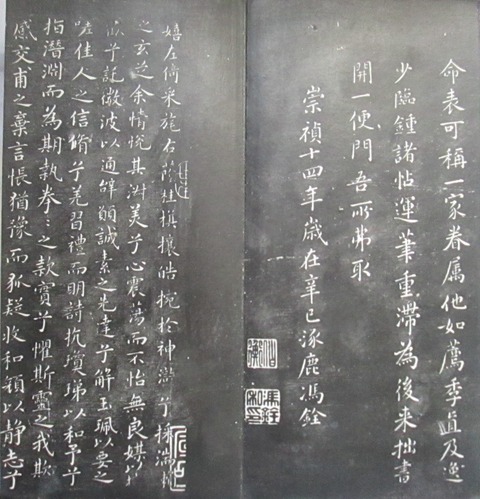 命表可稱一家眷屬他如薦季直及逸
少臨鍾諸帖運筆重滯為後来拙書
開一便門吾所弗取
崇禎十四年歲在辛巳涿鹿馮銓
嬉左倚采旄右蔭桂旗攘皓捥於神滸兮採湍
之玄芝余情悅其淑美兮心震蕩而不怡無良媒以
兮託微波以通辭願誠素之先達兮解玉珮以要之
嗟佳人之信脩兮羌習禮而明詩抗瓊珶以和予兮
指潛淵而為期執拳〻之款實兮懼斯靈之我欺
感交甫之棄言悵猶豫而狐疑收和顏以静志兮